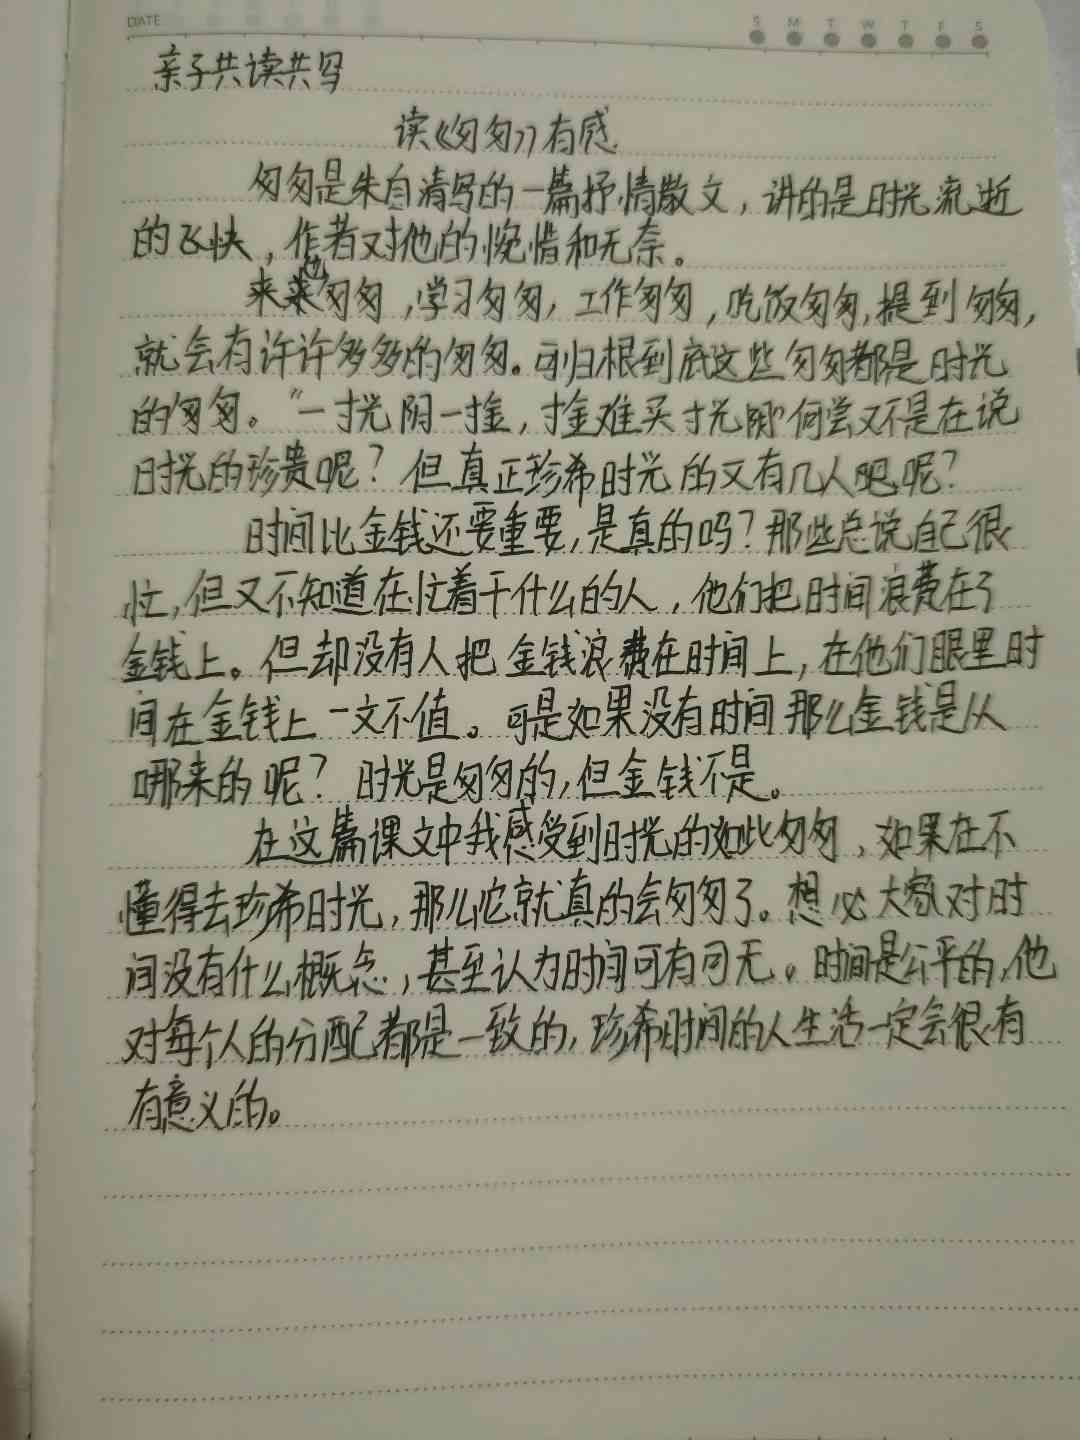 DATE
S M T W T F S
亲子共读共写
读《匆匆》有感
匆匆是朱自清写的一篇抒情散文，讲的是时光流逝
的飞快，作者对他的惋惜和无奈。
来也匆匆，学习匆匆，工作匆匆，吃饭匆匆，提到匆匆，
就会有许许多多的匆匆。可归根到底这些匆匆都是时光
的匆匆。“一寸光阴一寸金，寸金难买寸光阴”何尝又不是在说
时光的珍贵呢？但真正珍希时光的又有几人吧呢？
时间比金钱还要重要，是真的吗？那些总说自己很
忙，但又不知道在忙着干什么的人，他们把时间浪费在了
金钱上。但却没有人把金钱浪费在时间上，在他们眼里时
间在金钱上一文不值。可是如果没有时间那么金钱是从
哪来的呢？时光是匆匆的，但金钱不是。
在这篇课文中我感受到时光的如此匆匆，如果在不
懂得去珍希时光，那么它就真的会匆匆了。想必大家对时
间没有什么概念，甚至认为时间可有可无。时间是公平的，他
对每个人的分配都是一致的，珍希时间的人生活一定会很有
有意义的。